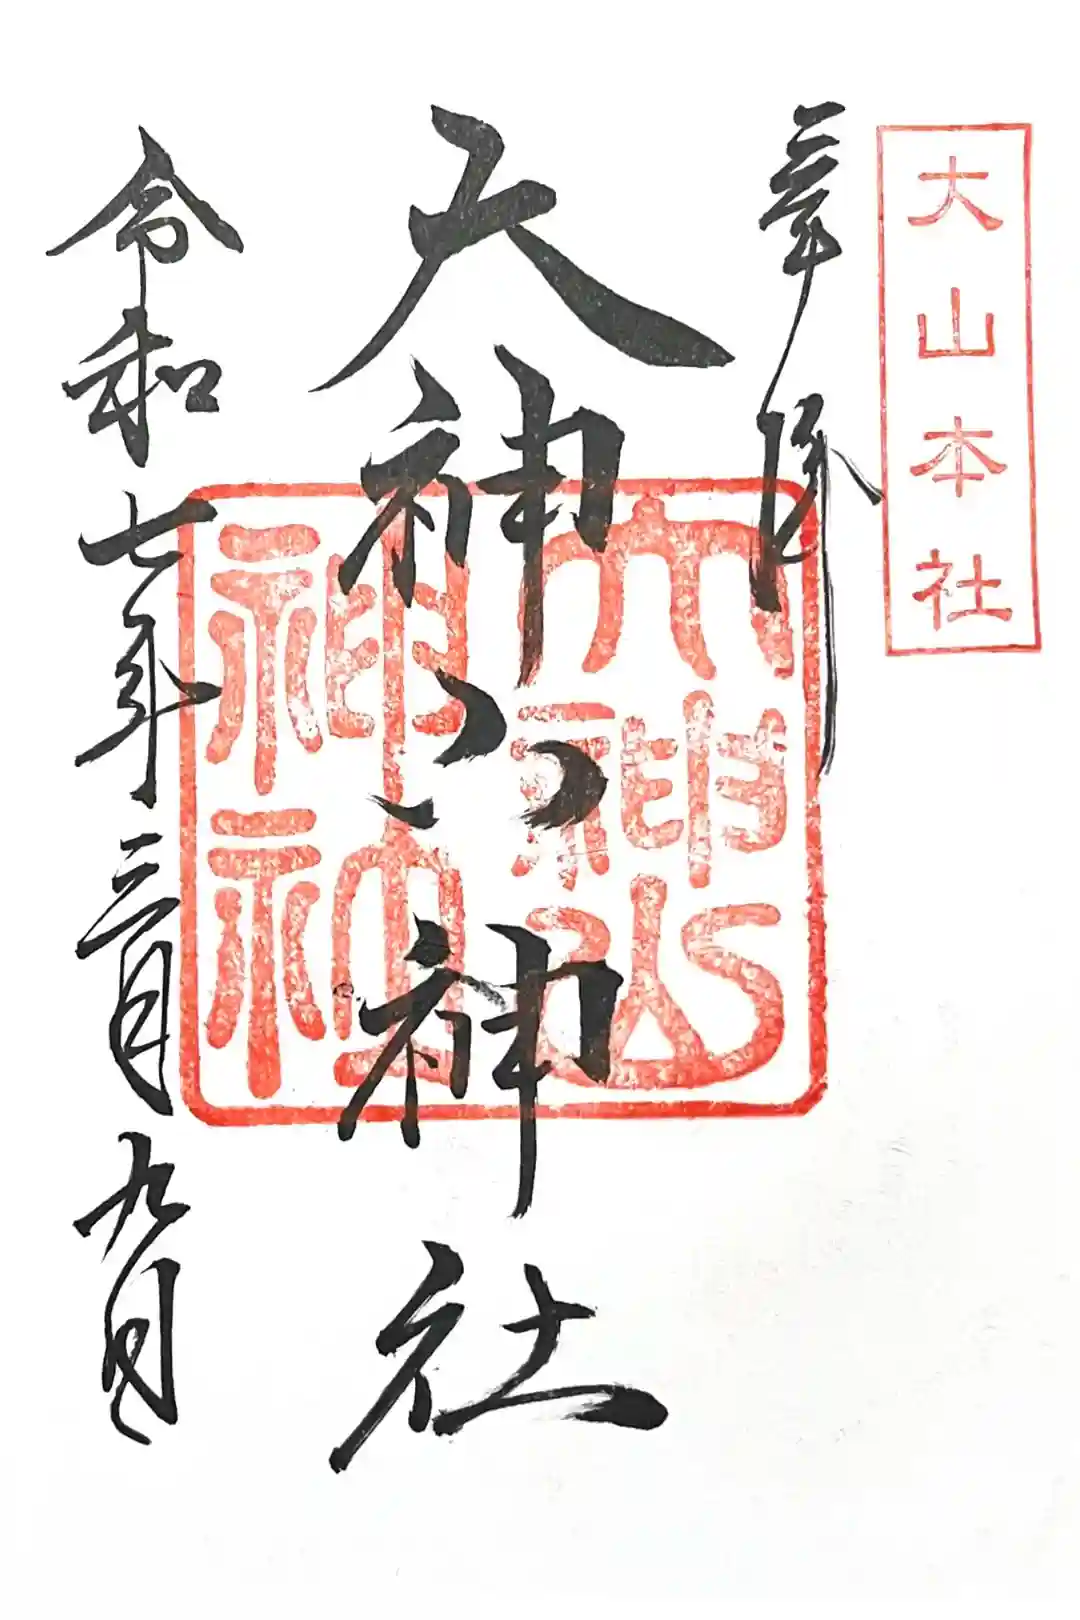 大山本社
奉拝
大神山神社
大神山
神社
令和七年三月九日